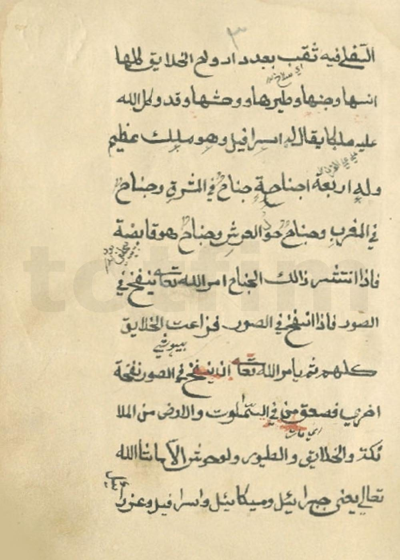 السفلى فيه ثقب بعدد ارواح الخلايق كلها
انسها وجنها وطيرها ووحشها وقد وكل الله
عليه ملكا يقال له اسرافيل وهو ملك عظيم
وله اربعة اجنحة جناح في المشرق وجناح
في المغرب وجناح حول العرش وجناح هو قابضة
فاذا انتشر ذالك الجناح امر الله تعا ينفخ في
الصور فاذا انفخ في الصور فزاعت الخلايق
كلهم ثم يامر الله تعا ان ينفخ في الصور نفخة
اخرى فصعق من في السموت والارض من الملا
ئكة والخلايق والطيور ولوحوش الا ماشا الله
تعالى يعني جبرائيل وميكائيل واسرافيل وعزرا
totfim